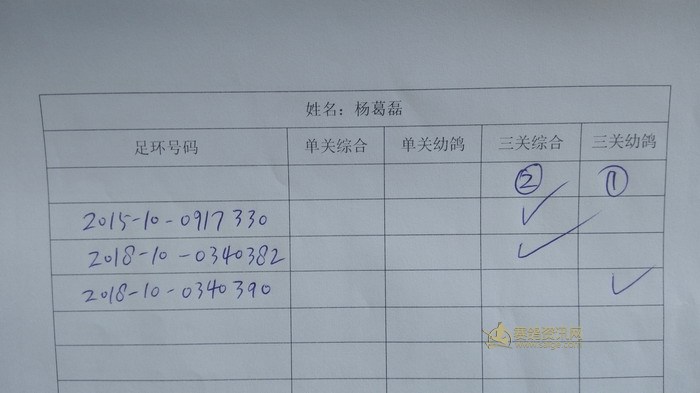 姓名：杨葛磊
足环号码 单关综合 单关幼鸽 三关综合 三关幼鸽
② ①
2015-10-0917330 ✓
2018-10-0340382 ✓
2018-10-0340390 ✓
赛鸽资讯网